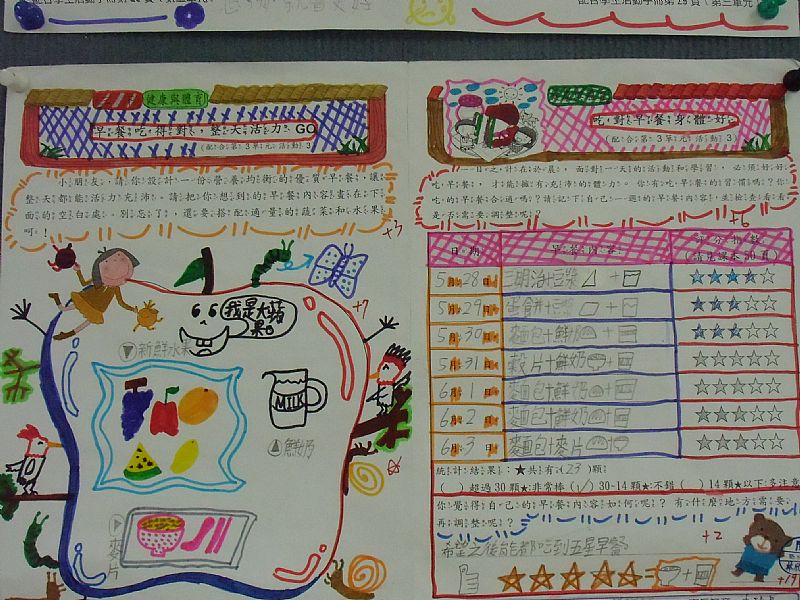 健康與體育
早餐吃得對，整天活力GO
(配合第3單元活動3)
小朋友，請你設計一份營養均衡的優質早餐，讓
整天都能活力充沛。請把你想到的早餐內容畫在下
面的空白處。別忘了，還要搭配適量的蔬菜和水果
呵！
+3
我是大蘋
果。
+7
▼新鮮水果
MILK
▲鮮奶
▶麥片
吃對早餐身體好
(配合第3單元活動3)
一日之計在於晨，面對一天的活動和學習，必須好好
吃早餐，才能擁有充沛的體力。你有吃早餐的習慣嗎？你
吃的早餐合適嗎？請記下自己一週的早餐內容，並檢查看看
是否需要調整呢？
+6
日期 早餐內容
5月28日 三明治+豆漿 ☆☆☆☆☆
5月29日 蛋餅+豆漿 ☆☆☆☆☆
5月30日 麵包+鮮奶 ☆☆☆☆☆
5月31日 穀片+鮮奶 ☆☆☆☆☆
6月1日 麵包+鮮奶 ☆☆☆☆☆
6月2日 麵包+鮮奶 ☆☆☆☆☆
6月3日 麵包+麥片 ☆☆☆☆☆
統計結果：★共有(23)顆
( )超過30顆★:非常棒 (✓)30-14顆★:不錯 ( )14顆★以下:多注意
你覺得自己的早餐內容如何呢？有什麼地方需要
再調整呢？
+2
希望之後能都吃到五星早餐